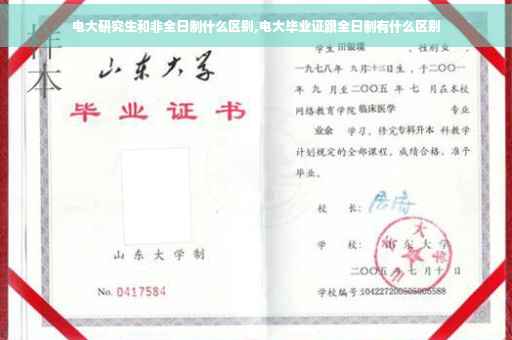 电大研究生和非全日制什么区别,电大毕业证跟全日制有什么区别
样本
山东大学
毕业证书
山东大学制
No. 0417584
学生 田银瑞 ,性别 女 ,
一九七八年 九月十三日生,于二〇〇一
年 九 月至二〇〇五 年 七 月在本校
网络教育学院 临床医学 专业
业余 学习,修完专科升本 科教学
计划规定的全部课程,成绩合格,准予
毕业。
校 长:
学 校: 山东大学
二〇〇五年 七 月十 日
学校编号:104227200505005588